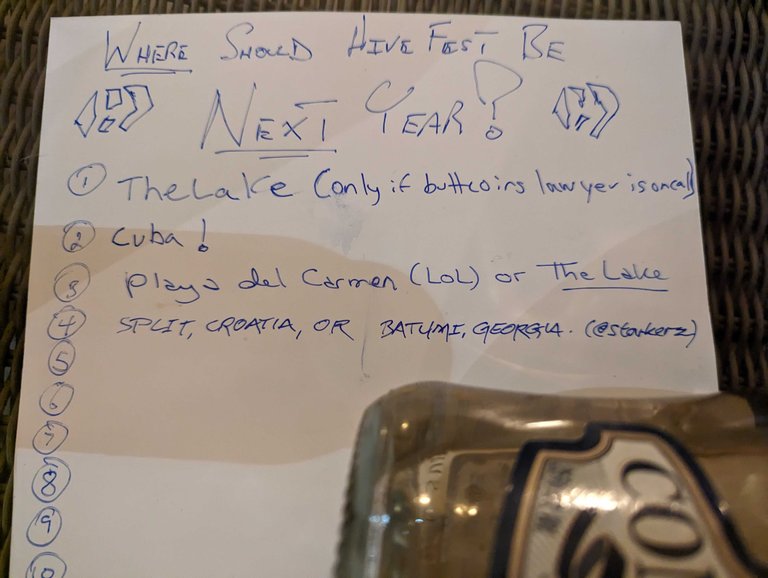 WHERE SHOULD HIVE FEST BE
NEXT YEAR?
① The Lake (only if buttcoins lawyer is oncall)
② Cuba!
③ playa del Carmen (LOL) or The Lake
④ SPLIT, CROATIA, OR BATUMI, GEORGIA. (@starkerz)
⑤
⑥
⑦
⑧
⑨
10
CO